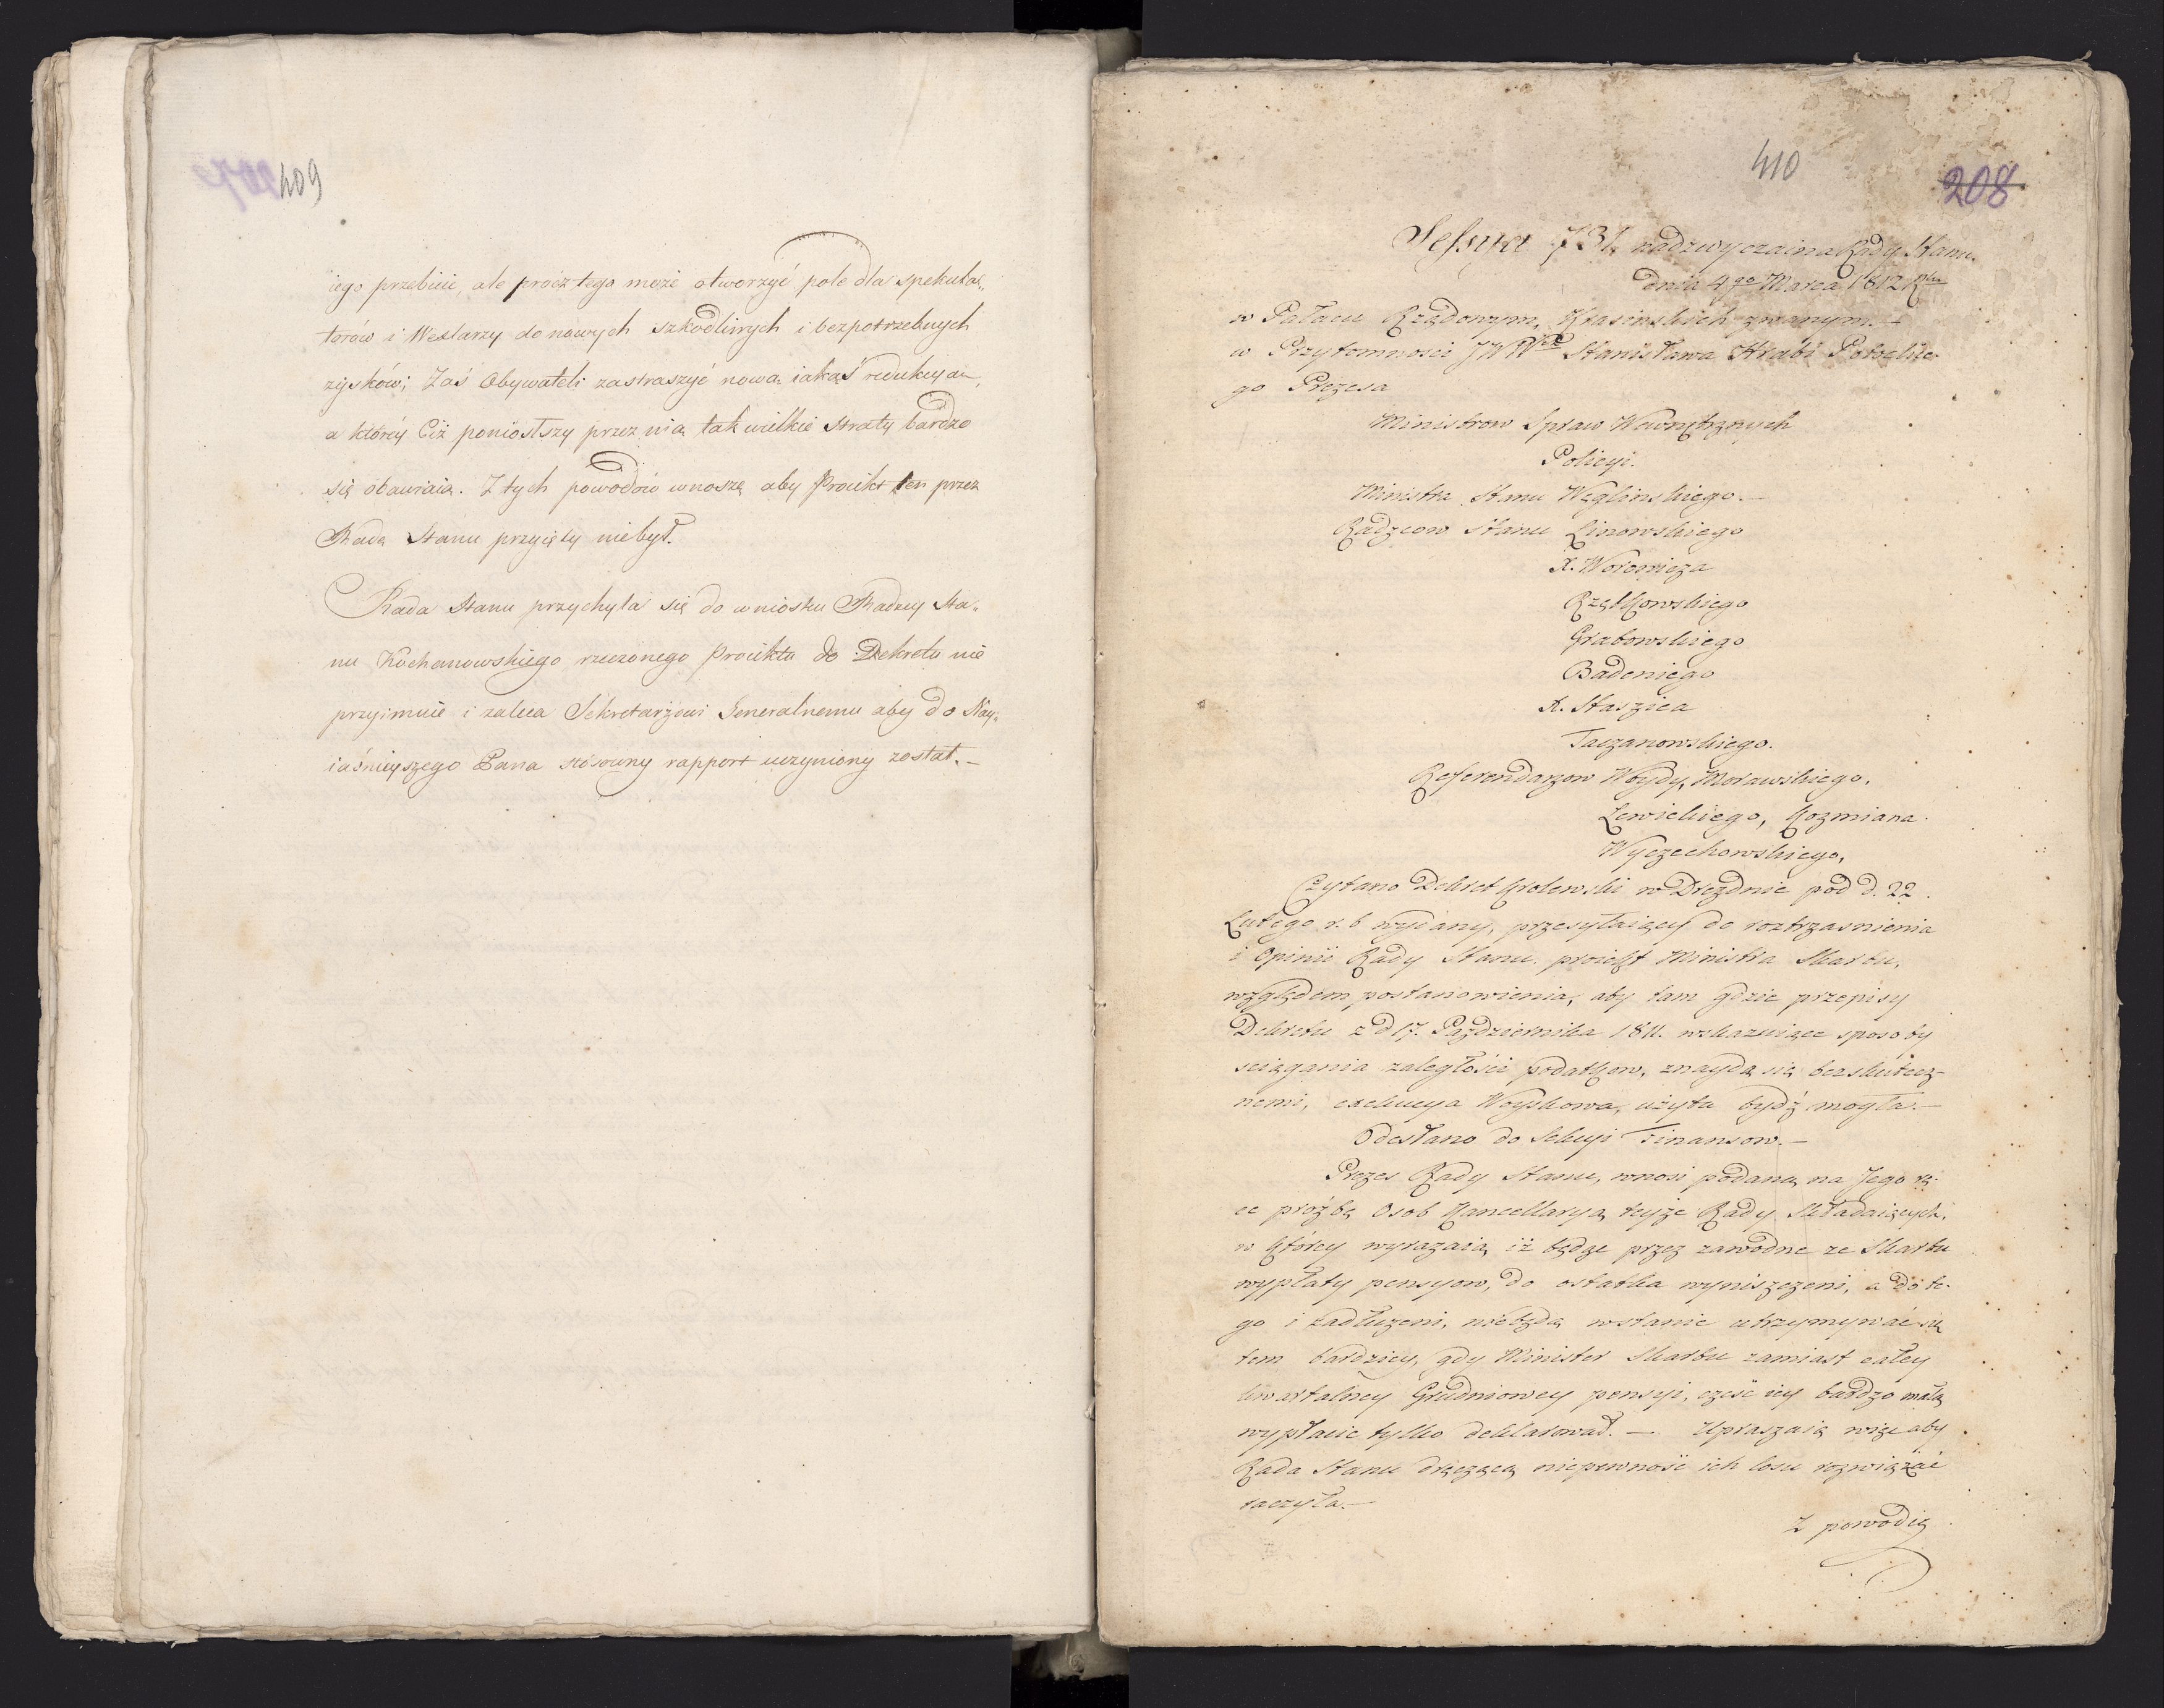 409
iego przebicie, ale prócz tego może otworzyć pole dla spekula„
torów i Wexlarzy do nowych szkodliwych i bezpotrzebnych
zysków; Zaś Obywateli zastraszyć nową iakąś redukcyą,
a którey Ciż poniosłszy przez nią tak wielkie straty bardzo
się obawiaią. Z tych powodów wnoszę aby Proiekt ten przez
Radę Stanu przyięty niebył.
Rada Stanu przychyla się do wniosku Radzcy Sta„
nu Kochanowskiego rzeczonego Proiektu do Dekretu nie
przyimuie i zaleca Sekretarzowi Generalnemu aby do Nay„
iaśnieyszego Pana stósowny rapport uczyniony został.—
410
208
Sessya 731. nadzwyczaina Rady Stanu
dnia 4go Marca 1812 Rku
w Pałacu Rządowym, Krasinskich zwanym.—
w Przytomnosci JW Stanisława Hrabi Potockie
go Prezesa
Ministrow Spraw Wewnętrznych
Policyi.
Ministra Stanu Węglinskiego.—
Radzcow Stanu Linowskiego
X. Woronicza
Rzątkowskiego
Grabowskiego
Badeniego
X. Staszica
Taczanowskiego.
Referendarzow Woydy, Morawskiego,
Lewickiego, Kozmiana
Wyczechowskiego,
Czytano Dekret Krolewski w Dreznie pod d. 22
Lutego r. b wydany, przesyłaiący do roztrząsnienia
i Opinii Rady Stanu proiekt Ministra Skarbu,
względem postanowienia, aby tam gdzie przepisy
Dekretu z d 17. Pazdziernika 1811. wskazuiące sposoby
sciągania zaległości podatkow, znaydą się bezskutecz-
nemi, exekucya Woyskowa, użyta bydź mogła.—
Odesłano do Sekcyi Finansow.—
Prezes Rady Stanu, wnosi podaną na Jego rę-
ce prożbę Osob Kancellaryą teyże Rady składaiących,
w którey wyrażaią iż będąc przez zawodne ze Skarbu
wypłaty pensyow, do ostatka wyniszczeni, a do te-
go i zadłużeni, niebędą wstanie utrzymywać się
tem bardziey, gdy Minister Skarbu zamiast całey
kwartalney Grudniowey pensyi, część iey bardzo małą
wypłacić tylko deklarował.— Upraszaią więc aby
Rada Stanu dręczącą niepewność ich losu rozwiązać
raczyła.—
Z powodu